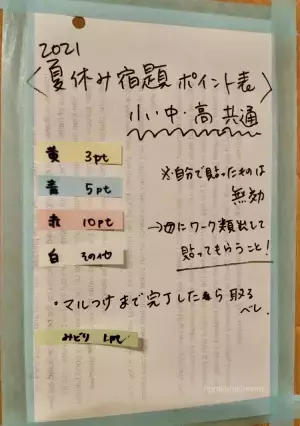 2021
〈夏休み宿題 ポイント表〉
小・中・高 共通
黄 3pt
青 5pt
赤 10pt
白 その他
※自分で貼ったものは
無効
→由にワーク類出して
貼ってもらうこと!
・マルつけまで完了したら取る
べし.
みどり 1pt